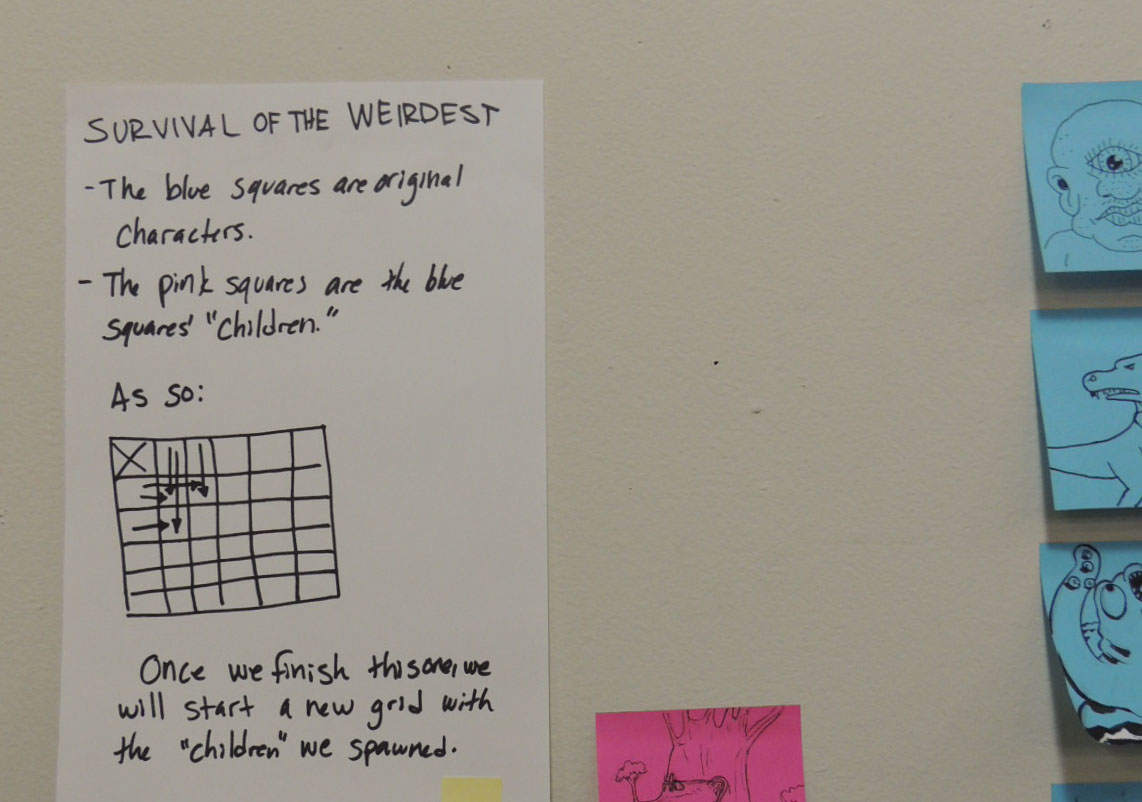 SURVIVAL OF THE WEIRDEST
- The blue squares are original
characters.
- The pink squares are the blue
squares' "children."
As so:
Once we finish this one, we
will start a new grid with
the "children" we spawned.